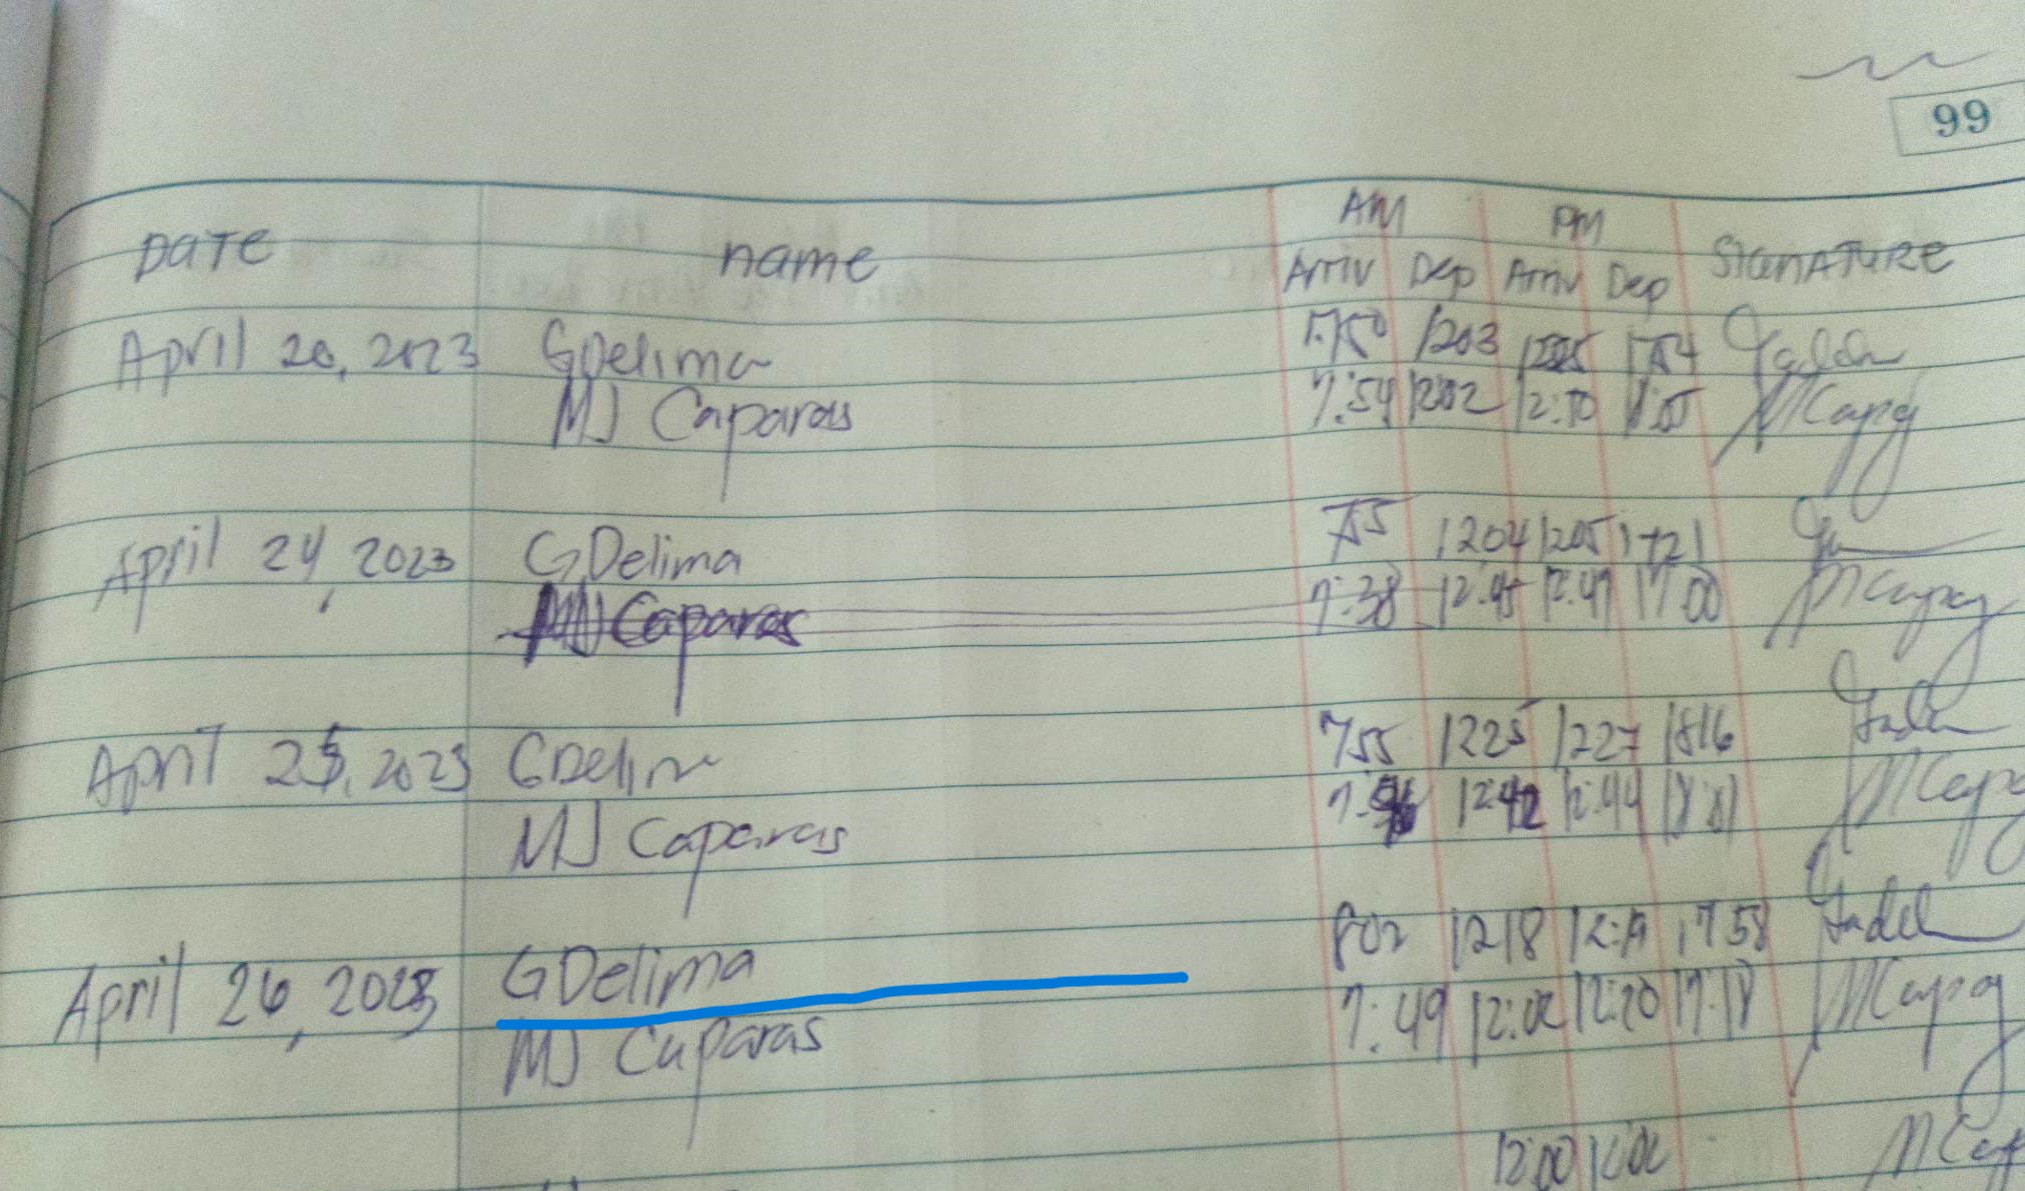 99
AM PM
DATE name Arriv Dep Arriv Dep SIGNATURE
April 20, 2023 GDelima 7:50 1203 1754
MJ Caparas 7:54 1202 12:10
April 24, 2023 GDelima 755 1204 1205 1721
MJ Caparas 7:38 12:45 12:47 17:00
April 25, 2023 GDelima 755 1225 1227 1816
MJ Caparas 12:42 12:44
April 26, 2023 GDelima 802 1218 12:19 1758
MJ Caparas 7:49 12:02 12:20 17:18
12:00 12:02